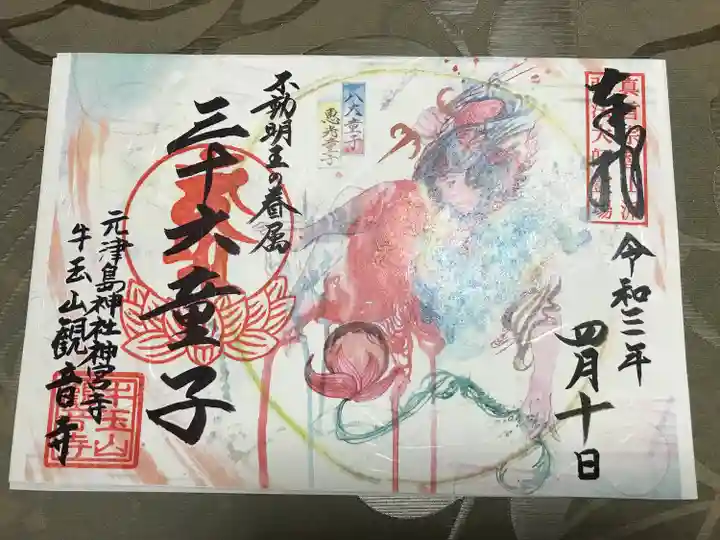 奉拝
令和三年
四月十日
八大童子
恵光童子
不動明王の眷属
三十六童子
元津島神社神宮寺
牛玉山觀音寺
牛玉山
觀音寺